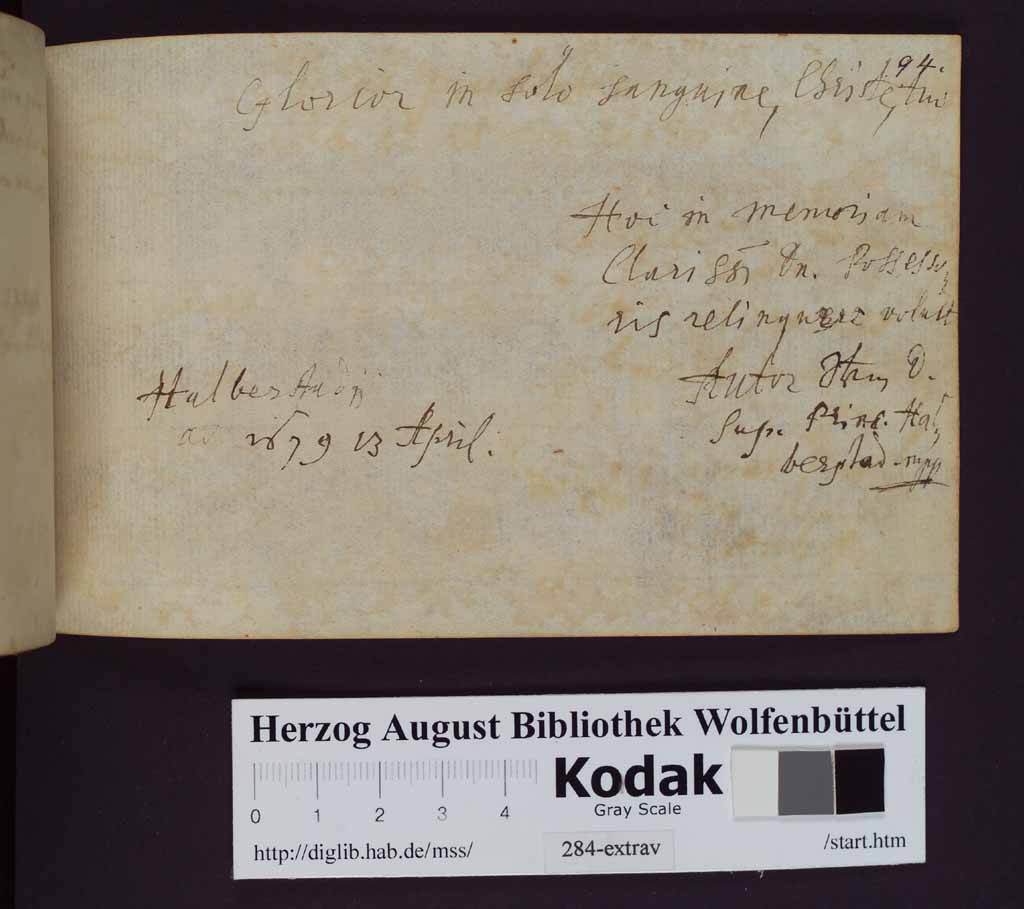 194.
Glorior in solo sanguine, Christe, tuo
Hoc in memoriam
Clariss Dn. Possesso,
ris relinquere voluit
Autor D.
Halberstadij
Sup. Princ. Hal,
ao 1679 13 April.
berstad. mpp
Herzog August Bibliothek Wolfenbüttel
Kodak
Gray Scale
0 1 2 3 4
http://diglib.hab.de/mss/
284-extrav
/start.htm